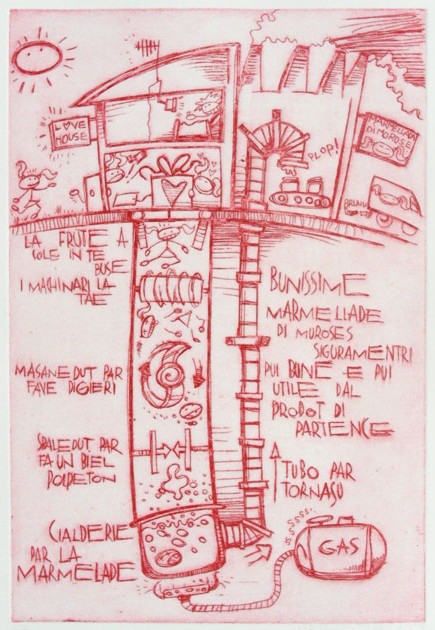 LOVE
HOUSE
PLOP!
MARMELLADA
DI MOROSE
BRUUU
LA FRUTE A
COLE IN TE
BUSE
I MACHINARI LA-
TAE
MASANE DUT PAR
FAVE DIGIERI
SBALE DUT PAR
FA UN BIEL
POLPETON
CIALDERIE
PAR LA
MARMELADE
BUNISSIME
MARMELLADE
DI MUROSES
SIGURAMENTRI
PUI BUNE E PUI
UTILE DAL
PRODOT DI
PARTENCE
TUBO PAR
TORNASU
GAS